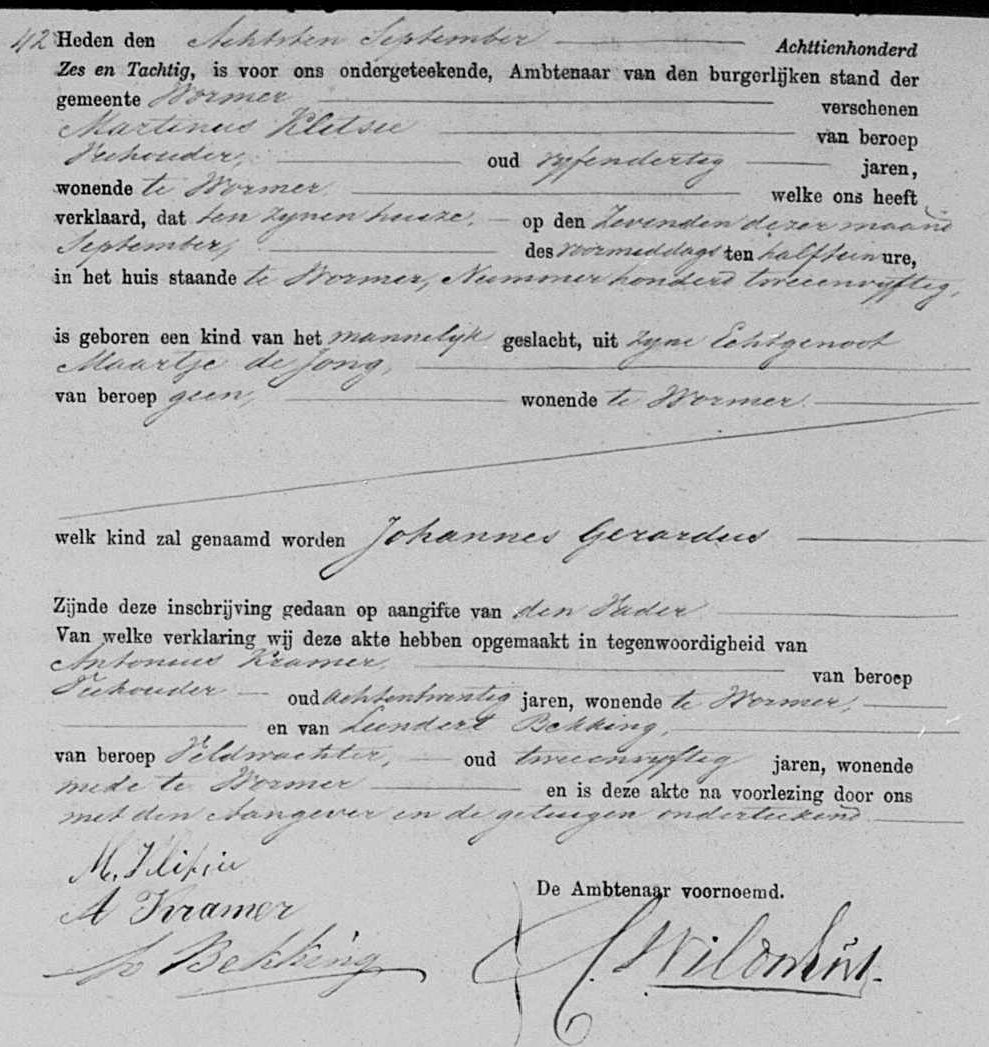 42 Heden den Achtsten September Achttienhonderd
Zes en Tachtig, is voor ons ondergeteekende, Ambtenaar van den burgerlijken stand der
gemeente Wormer verschenen
Martinus Klitsie van beroep
Veehouder, oud vyfendertig jaren,
wonende te Wormer welke ons heeft
verklaard, dat ten zynen huize, op den Zevenden dezer maand
September, des voormiddags ten half tien ure,
in het huis staande te Wormer, Nummer honderd tweeenvyftig,
is geboren een kind van het mannelyk geslacht, uit zyne Echtgenoot
Maartje de Jong,
van beroep geen, wonende te Wormer.
welk kind zal genaamd worden Johannes Gerardus
Zijnde deze inschrijving gedaan op aangifte van den Vader
Van welke verklaring wij deze akte hebben opgemaakt in tegenwoordigheid van
Antonius Kramer, van beroep
Veehouder oud achtentwintig jaren, wonende te Wormer,
en van Leendert Bekking,
van beroep Veldwachter, oud tweeenvyftig jaren, wonende
mede te Wormer en is deze akte na voorlezing door ons
met den Aangever en de getuigen onderteekend
M. Klitsie
A Kramer
De Ambtenaar voornoemd.
L Bekking